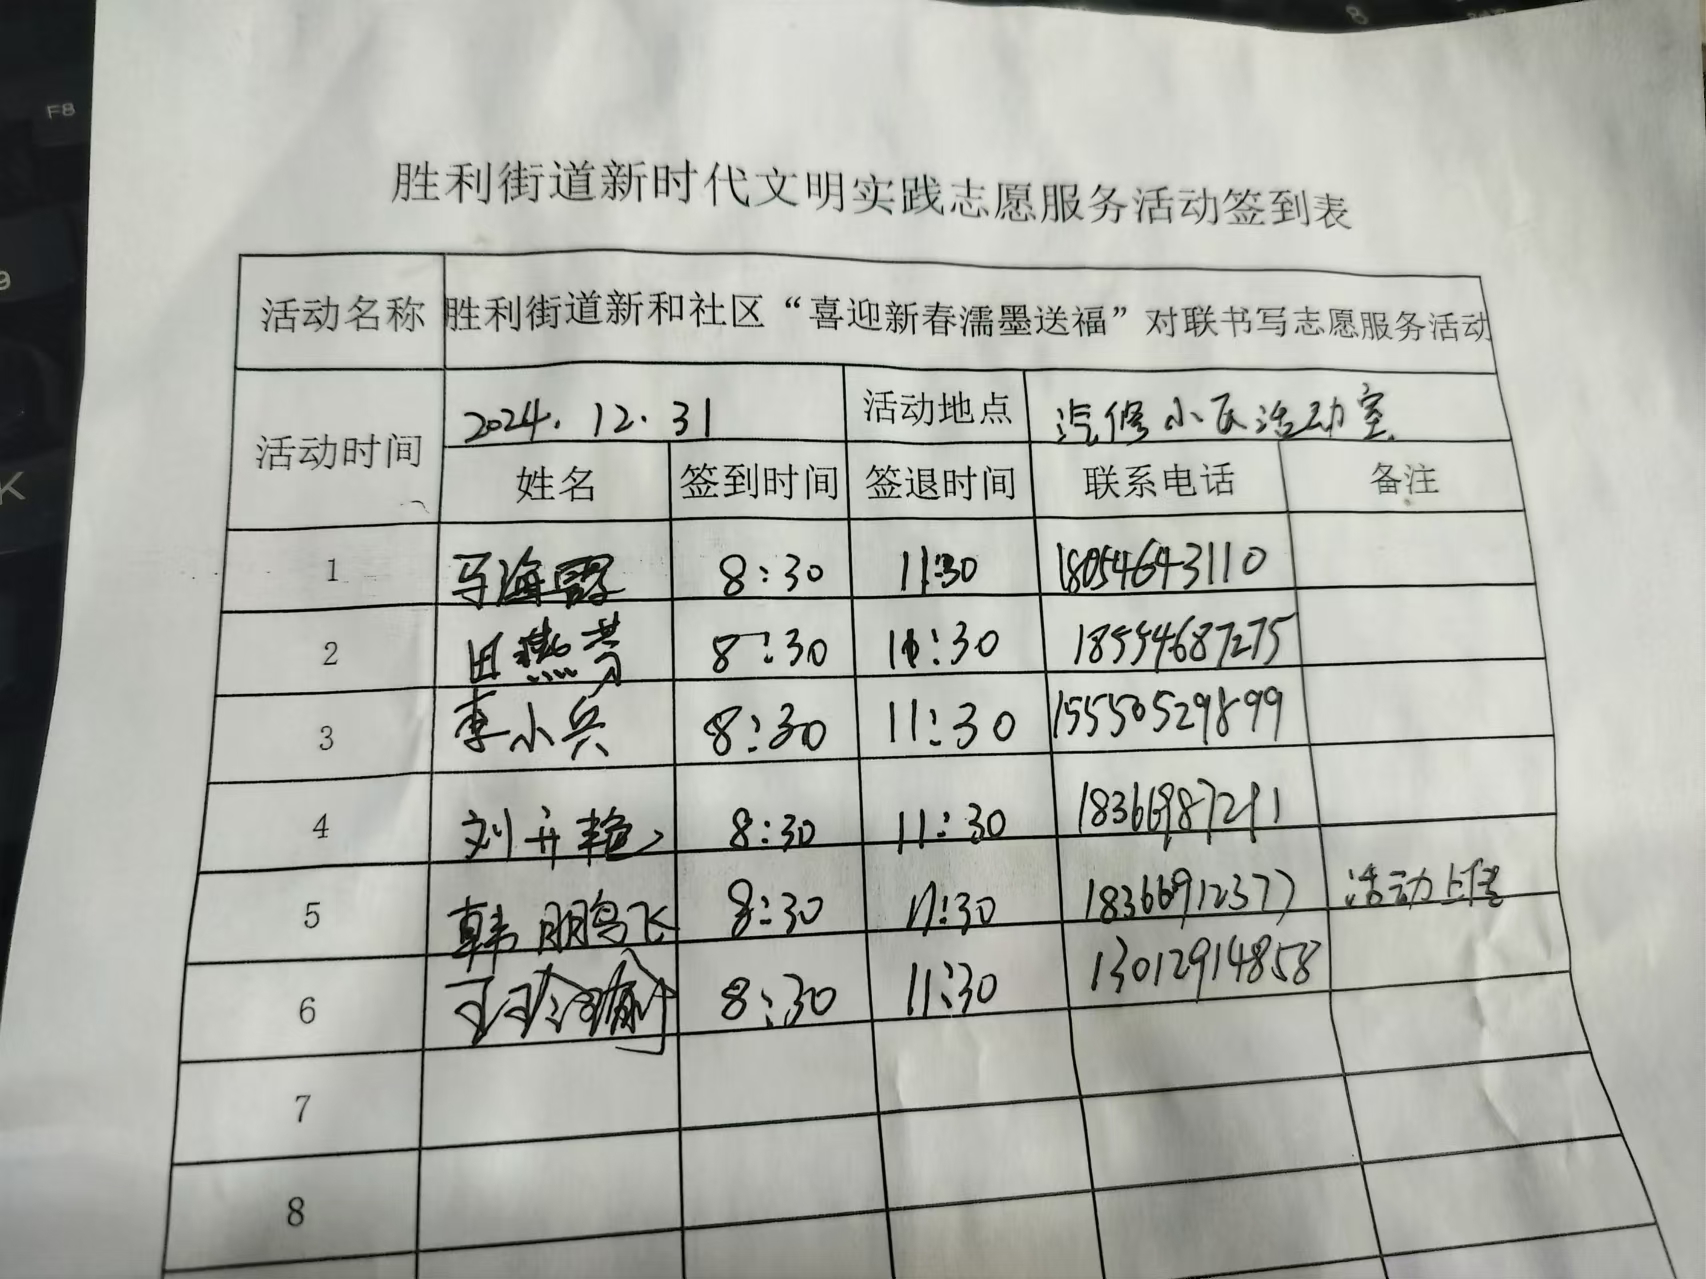 胜利街道新时代文明实践志愿服务活动签到表
活动名称 胜利街道新和社区“喜迎新春濡墨送福”对联书写志愿服务活动
活动时间 2024.12.31 活动地点 汽修小区活动室
姓名 签到时间 签退时间 联系电话 备注
1 马海霞 8:30 11:30 18054643110
2 田燕芳 8:30 11:30 18554687275
3 李小兵 8:30 11:30 15550529899
4 刘卉艳 8:30 11:30 18366987291
5 韩鹏飞 8:30 11:30 18366912377 活动上传
6 8:30 11:30 13012914858
7
8
F8
9
K
8